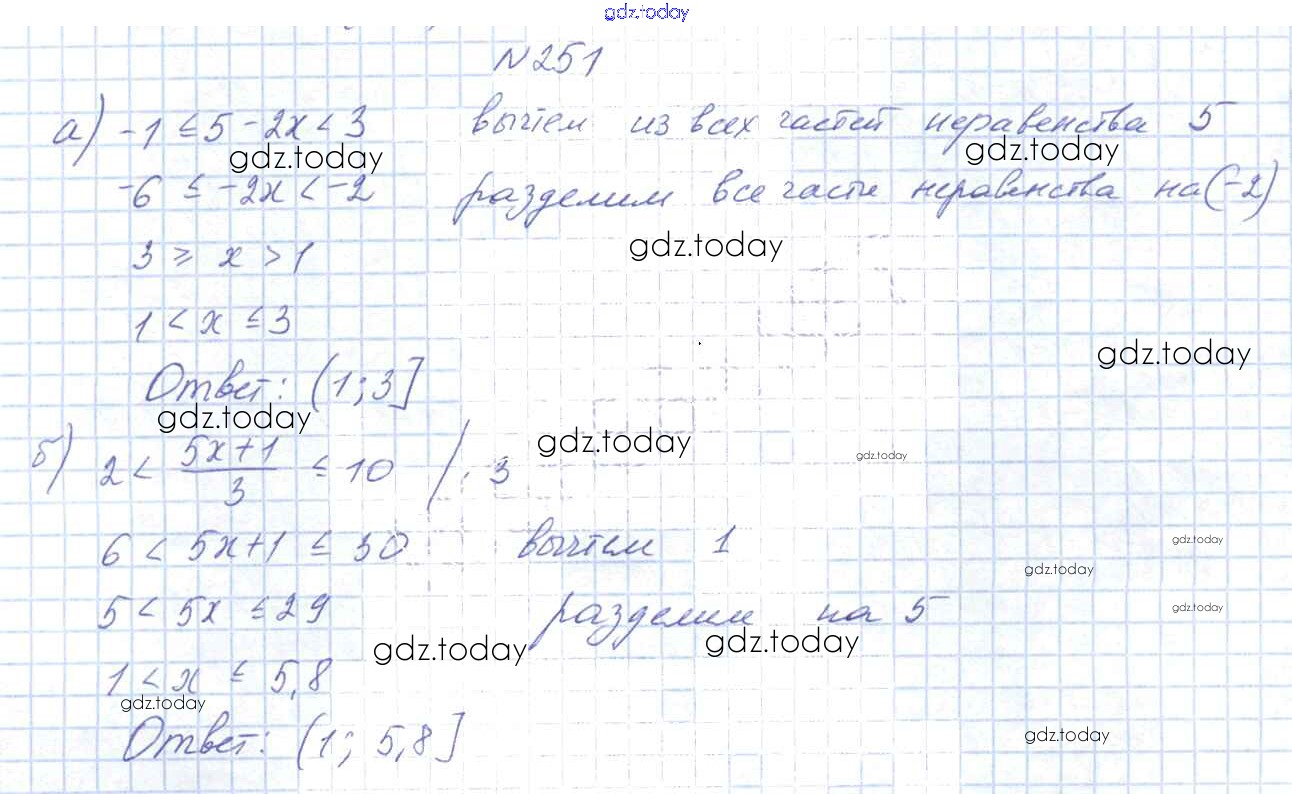 gdz.today
N 251
а) -1 ≤ 5 - 2x < 3 вычтем из всех частей неравенства 5
gdz.today gdz.today
-6 ≤ -2x < -2 разделим все части неравенства на (-2)
gdz.today
3 ≥ x > 1
1 < x ≤ 3
gdz.today
Ответ: (1; 3]
gdz.today
gdz.today
gdz.today
б) 2 < (5x+1)/3 ≤ 10 / · 3
6 < 5x+1 ≤ 30 вычтем 1
gdz.today
gdz.today
5 < 5x ≤ 29 разделим на 5
gdz.today
gdz.today gdz.today
1 < x ≤ 5,8
gdz.today
Ответ: (1; 5,8]
gdz.today